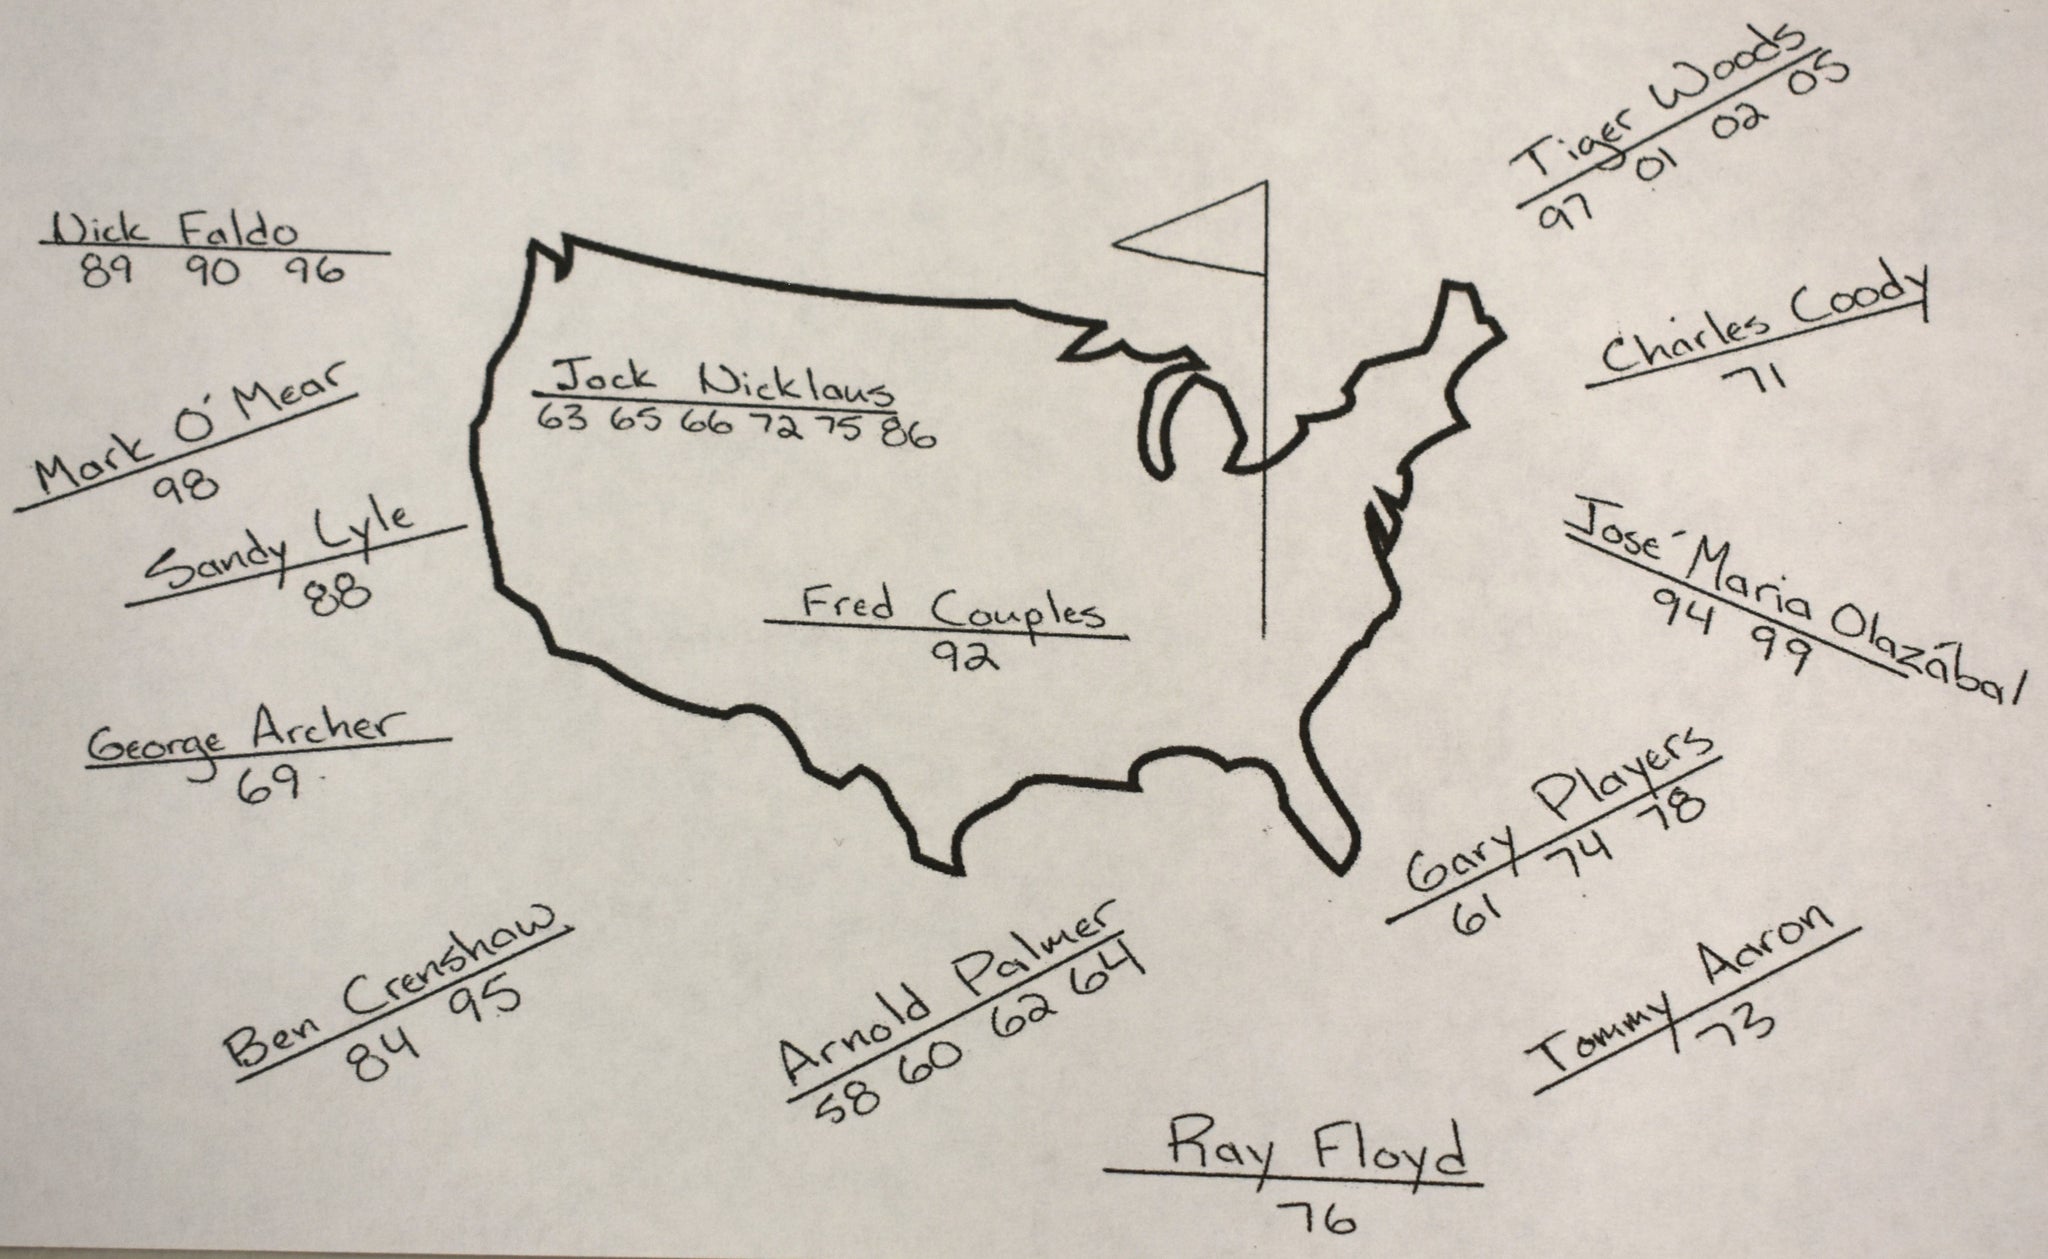 Tiger Woods
97 01 02 05
Nick Faldo
89 90 96
Charles Coody
71
Mark O'Mear
98
Jack Nicklaus
63 65 66 72 75 86
Sandy Lyle
88
José Maria Olazábal
94 99
Fred Couples
92
George Archer
69
Gary Players
61 74 78
Ben Crenshaw
84 95
Arnold Palmer
58 60 62 64
Tommy Aaron
73
Ray Floyd
76